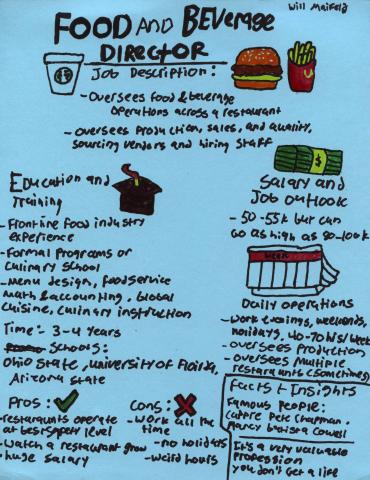 Will Maifeld
FOOD AND BEVERAGE
DIRECTOR
Job Description:
- Oversees food & beverage
operations across a restaurant
- oversees production, sales, and quality,
sourcing vendors and hiring staff
Education and
Training
- Frontline food industry
experience
- Formal Programs or
Culinary School
- Menu design, foodservice
math & accounting, Global
Cuisine, culinary instruction
Time: 3-4 years
Schools:
Ohio State, University of Florida,
Arizona State
Salary and
Job outlook
- 50-55k but can
go as high as 80-100k
Daily operations
- Work evenings, weekends,
holidays, 40-70 hrs/week
- oversees Production
- oversees Multiple
restaurants (sometimes)
Pros:
- restaraunts operate
at best safety level
- watch a restaurant grow
- huge salary
Cons:
- Work all the
time
- no holidays
- weird hours
Facts + Insights
Famous People:
Pete Chapman,
It's a very valuable
profession
you don't get a life